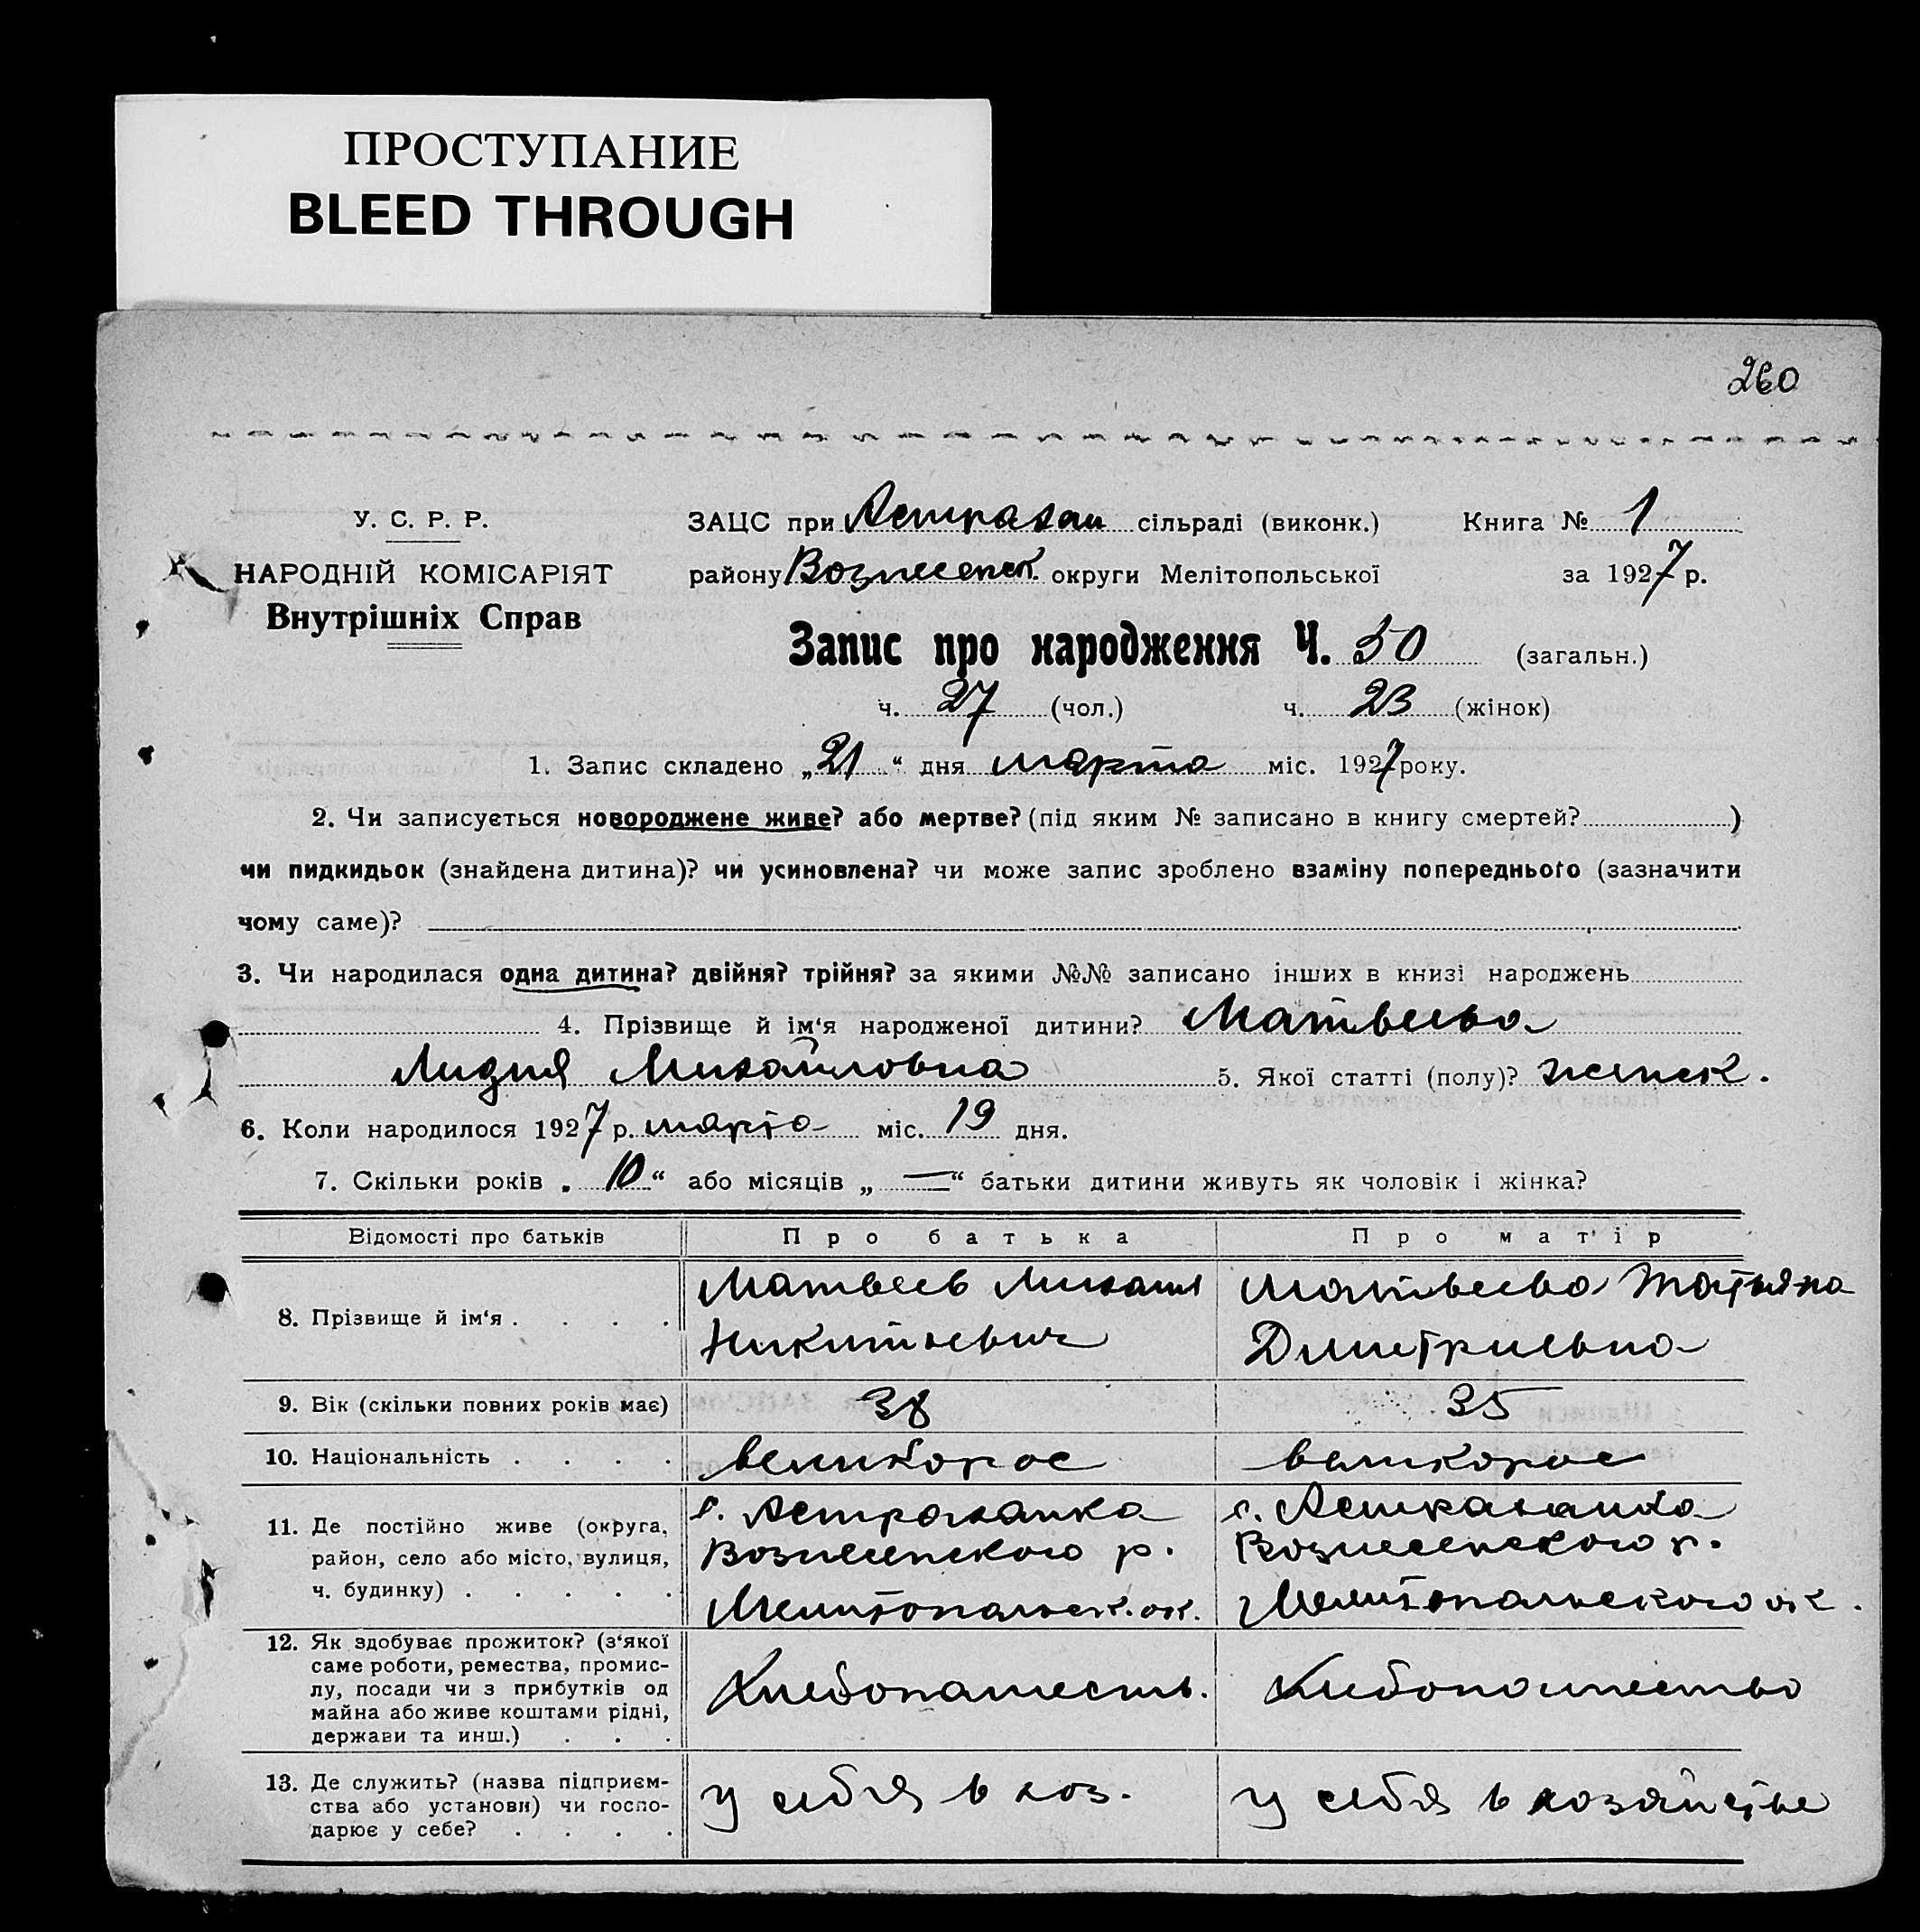 ПРОСТУПАНИЕ
BLEED THROUGH
260
У. С. Р. Р.
НАРОДНІЙ КОМІСАРІЯТ
Внутрішніх Справ
ЗАЦС при Астрахан сільраді (виконк.) Книга № 1
району Вознесенск. округи Мелітопольської за 1927 р.
Запис про народження Ч. 50 (загальн.)
ч. 27 (чол.) ч. 23 (жінок)
1. Запис складено „21“ дня марта міс. 1927 року.
2. Чи записується новороджене живе? або мертве? (під яким № записано в книгу смертей? )
чи пидкидьок (знайдена дитина)? чи усиновлена? чи може запис зроблено взаміну попереднього (зазначити
чому саме)?
3. Чи народилася одна дитина? двійня? трійня? за якими №№ записано інших в книзі народжень
4. Прізвище й ім‘я народженої дитини? Матвеева
Лидия Михайловна 5. Якої статті (полу)? женск.
6. Коли народилося 1927 р. марта міс. 19 дня.
7. Скільки років „10“ або місяців „—“ батьки дитини живуть як чоловік і жінка?
Відомості про батьків Про батька Про мат‘ір
8. Прізвище й ім‘я . . . .
Матвеев Михаил
Никитьевич
Матвеева Татьяна
Дмитриевна
9. Вік (скільки повних років має) 38 35
10. Національність . . . . великорос великорос
11. Де постійно живе (округа,
район, село або місто, вулиця,
ч. будинку) . . . . .
с. Астраханка
Вознесенского р.
Мелитопольск. ок.
с. Астраханка
Вознесенского р.
Мелитопольского ок.
12. Як здобуває прожиток? (з‘якої
саме роботи, ремества, промис-
лу, посади чи з прибутків од
майна або живе коштами рідні,
держави та инш.) . . .
Хлебопашеств.
Хлебопашество
13. Де служить? (назва підприєм-
ства або установи) чи госпо-
дарює у себе? . . . .
у себя в хоз.
у себя в хозяйстве